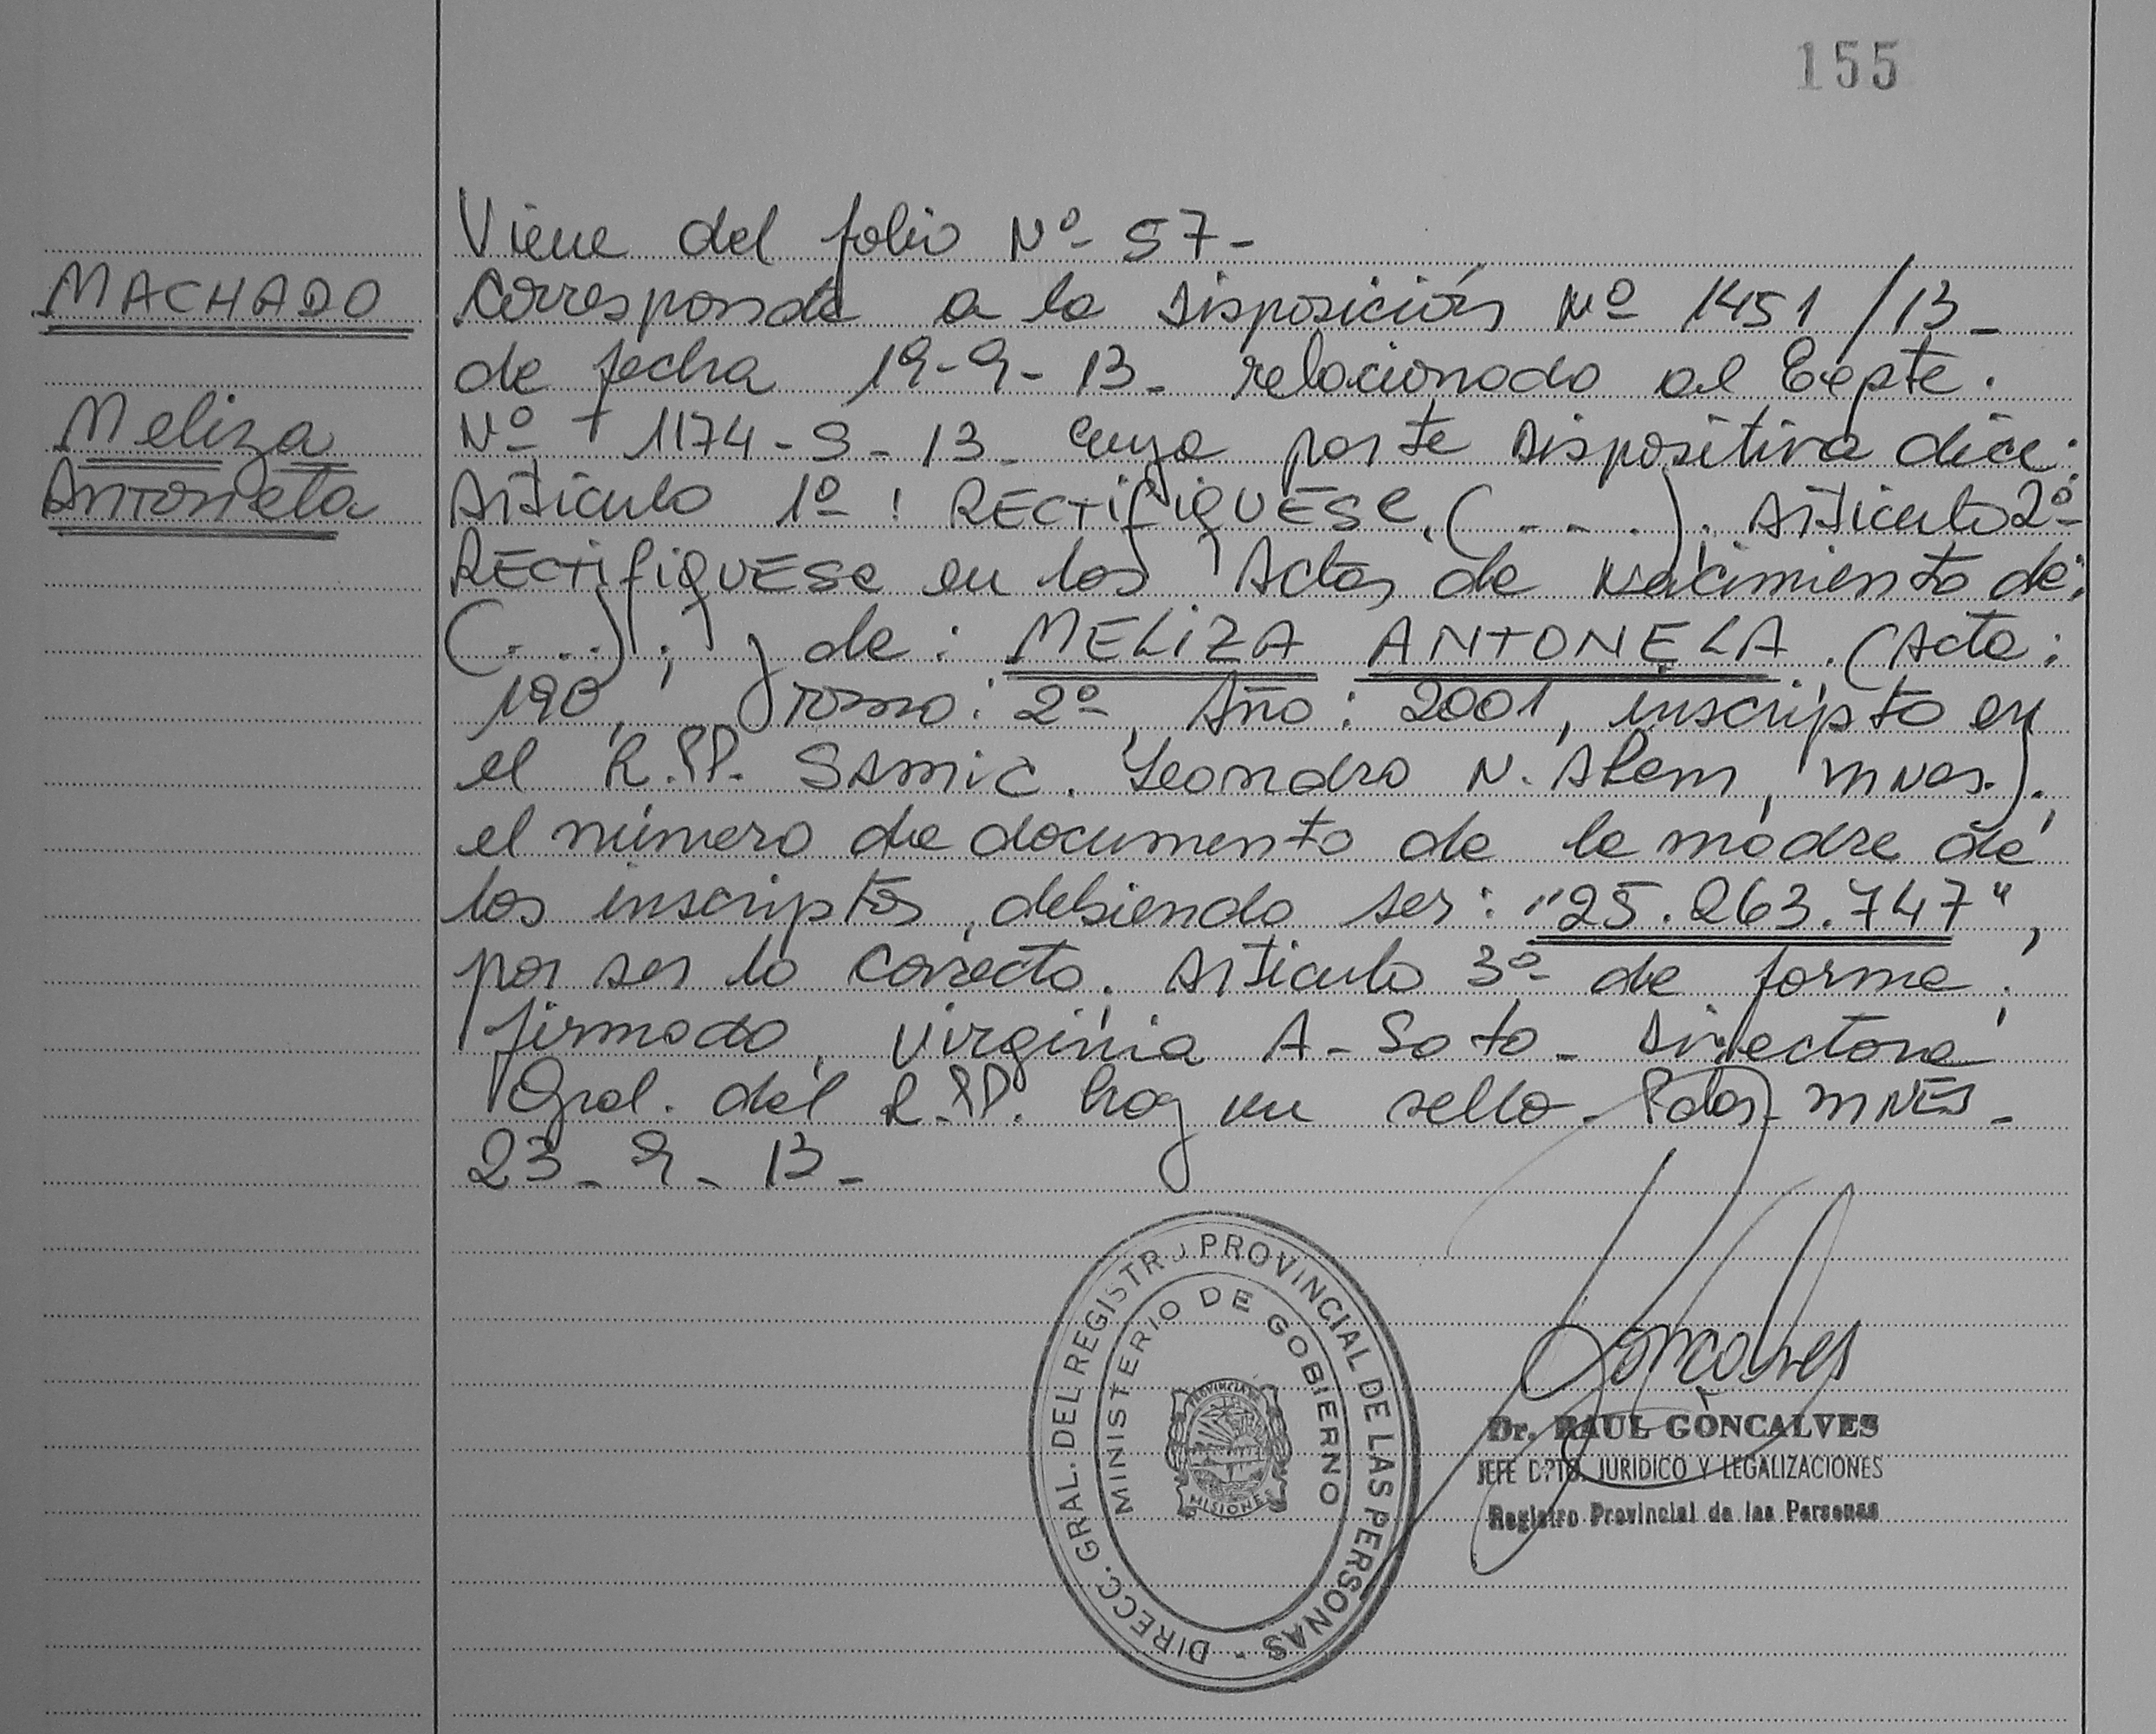 155
MACHADO
Meliza
Antonela
Viene del folio Nº 57-
Corresponde a la Disposición Nº 1451/13-
de fecha 19-9-13- relacionado al Expte.
Nº 1174-S-13- cuya parte dispositiva dice:
Artículo 1º: RECTIFIQUESE (....). Artículo 2º
RECTIFIQUESE en las Actas de Nacimiento de:
(...); y de: MELIZA ANTONELA. (Acta:
190, Tomo: 2º, Año: 2001, inscripto en
el R.P.P. SAMIC. Leandro N. Alem, Mnes.).
el número de documento de la madre de
los inscriptos, debiendo ser: "25.263.747",
por ser lo correcto. Artículo 3º de forma.
firmado, Virginia A-Soto- Directora
Gral. del R.P.P. hay un sello- Pdas- MNES-
23-9-13-
DIRECC. GRAL. DEL REGISTRO PROVINCIAL DE LAS PERSONAS -
MINISTERIO DE GOBIERNO
PROVINCIA DE
MISIONES
Goncalves
Dr. RAUL GONCALVES
JEFE DPTO. JURIDICO Y LEGALIZACIONES
Registro Provincial de las Personas